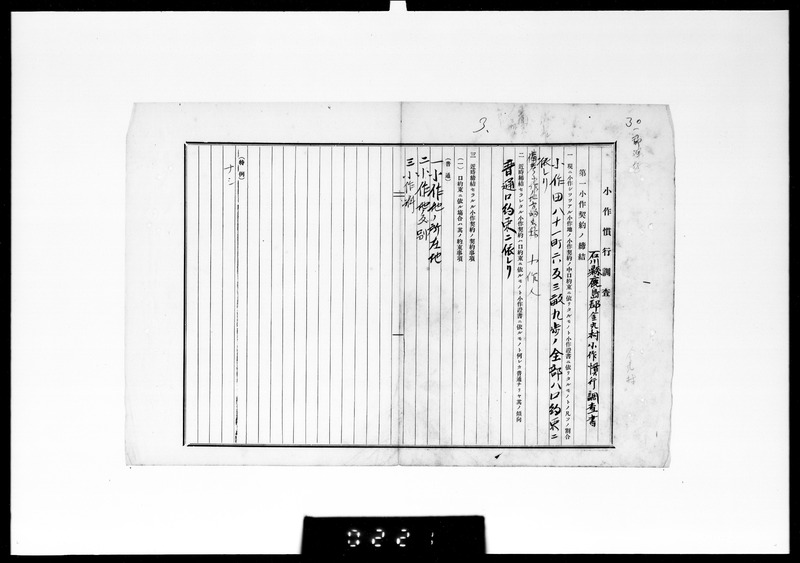 3.
30
小作慣行調査
石川縣鹿島郡金丸村小作慣行調査書
第一 小作契約ノ締結
一 現ニ小作シツツアル小作地ノ小作契約ノ中口約束ニ依リタルモノト小作證書ニ依リタルモノトノ凡ソノ割合
小作田八十一町六反三畝九歩ノ全部ハ口約束ニ
依レリ
二 近時締結セラレタル小作契約ハ口約束ニ依ルモノト小作證書ニ依ルモノト何レカ普通ナリヤ其ノ傾向
普通口約束ニ依レリ
三 近時締結セラルル小作契約ノ契約事項
(一) 口約束ニ依ル場合ハ其ノ約束事項
(普通)
一 小作地ノ所在地
二 小作地ノ反別
三 小作料
(特例)
ナシ
0221